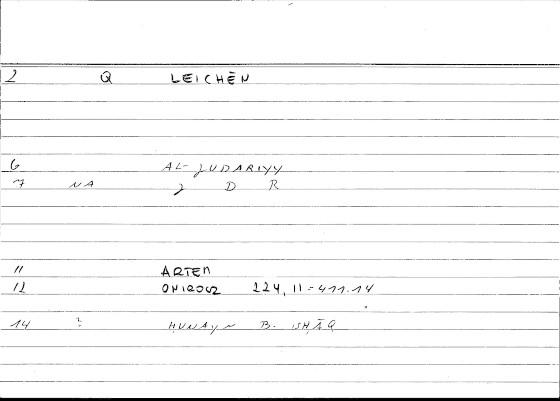 2 Q LEICHĒN
6 AL-ǦUDARIYY
7 NA Ǧ D R
11 ARTEM
12 ONIROCR 224, 11 = 411.14
14 ? ḤUNAYN B. ISḤĀQ